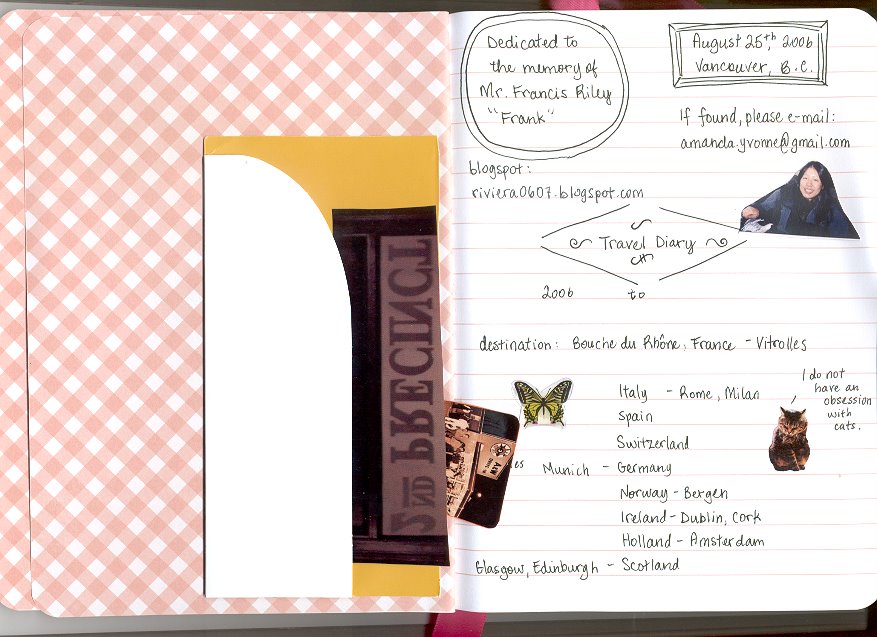 Dedicated to
the memory of
Mr. Francis Riley
"Frank"
August 25th, 2006
Vancouver, B.C.
If found, please e-mail:
amanda.yvonne@gmail.com
blogspot:
riviera0607.blogspot.com
Travel Diary
2006 to
destination: Bouche du Rhône, France - Vitrolles
I do not
have an
obsession
with
cats.
Italy - Rome, Milan
Spain
Switzerland
Munich - Germany
Norway - Bergen
Ireland - Dublin, Cork
Holland - Amsterdam
Glasgow, Edinburgh - Scotland
2ND PRECINCT